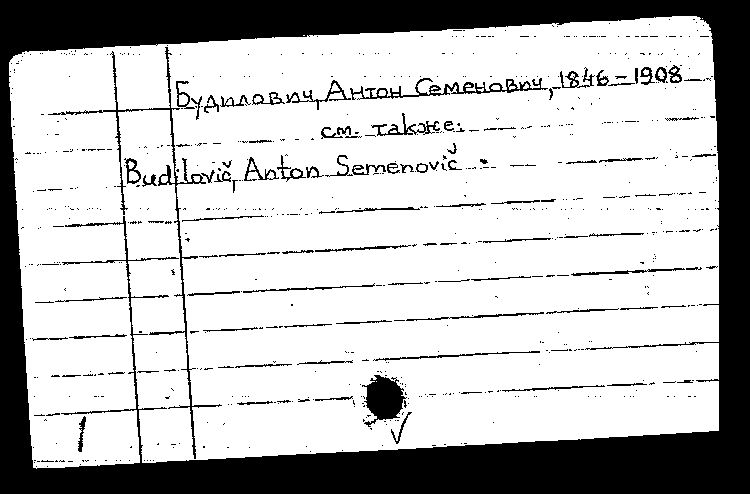 Будилович, Антон Семенович, 1846-1908
см. также:
Budilovič, Anton Semenovič.